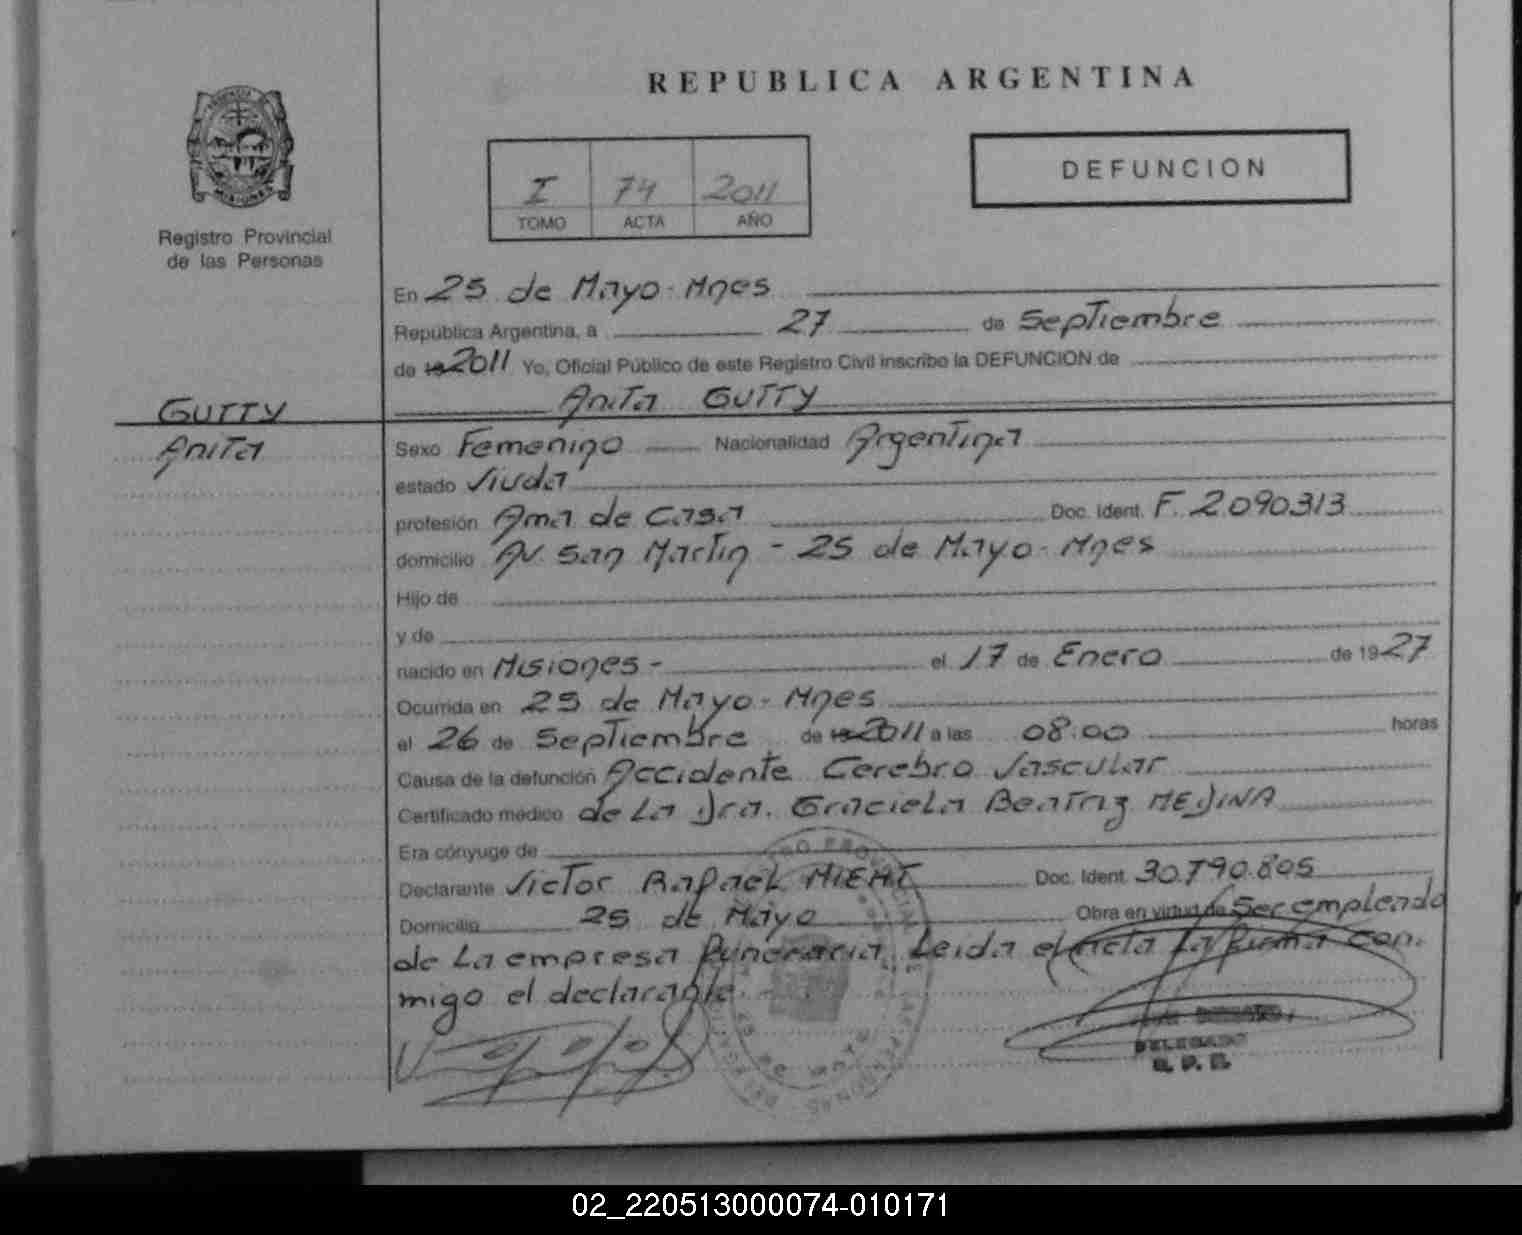 REPUBLICA ARGENTINA
DEFUNCION
I 74 2011
TOMO ACTA AÑO
MISIONES
Registro Provincial
de las Personas
En 25 de Mayo - Mnes
República Argentina, a 27 de Septiembre
de 19 2011 Yo, Oficial Público de este Registro Civil inscribo la DEFUNCION de
GUTTY
Anita GUTTY
Anita
Sexo Femenino Nacionalidad Argentina
estado Viuda
profesión Ama de Casa Doc. Ident. F. 2.090.313
domicilio Av. San Martin - 25 de Mayo - Mnes
Hijo de
y de
nacido en Misiones - el 17 de Enero de 1927
Ocurrida en 25 de Mayo - Mnes
el 26 de Septiembre de 19 2011 a las 08:00 horas
Causa de la defunción Accidente Cerebro Vascular
Certificado médico de La Dra. Graciela Beatriz MEDINA
Era cónyuge de
Declarante Victor Rafael Doc. Ident. 30.790.805
Domicilio 25 de Mayo Obra en virtud de Ser empleado
de La empresa Funeraria. Leida el Acta La firma con-
migo el declarante.
DELEGADO
R. P. P.
02_220513000074-010171